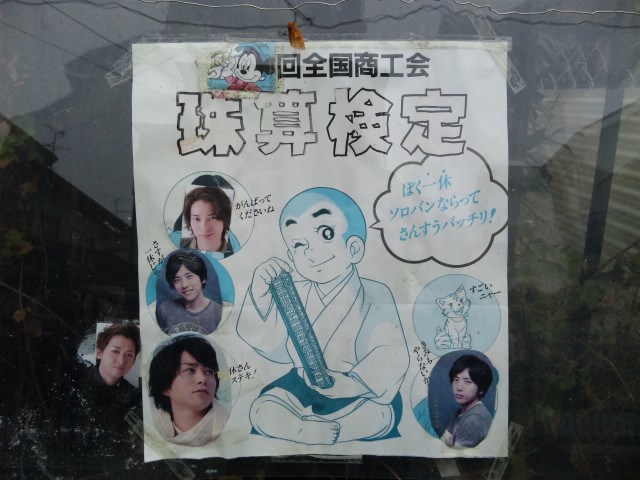 回全国商工会
珠算検定
ぼく一休
ソロバンならって
さんすうバッチリ!
がんばって
くださいね
さすが
一休さん
すごい
ニャー
休さん
ステキ!
きみも
やらないか